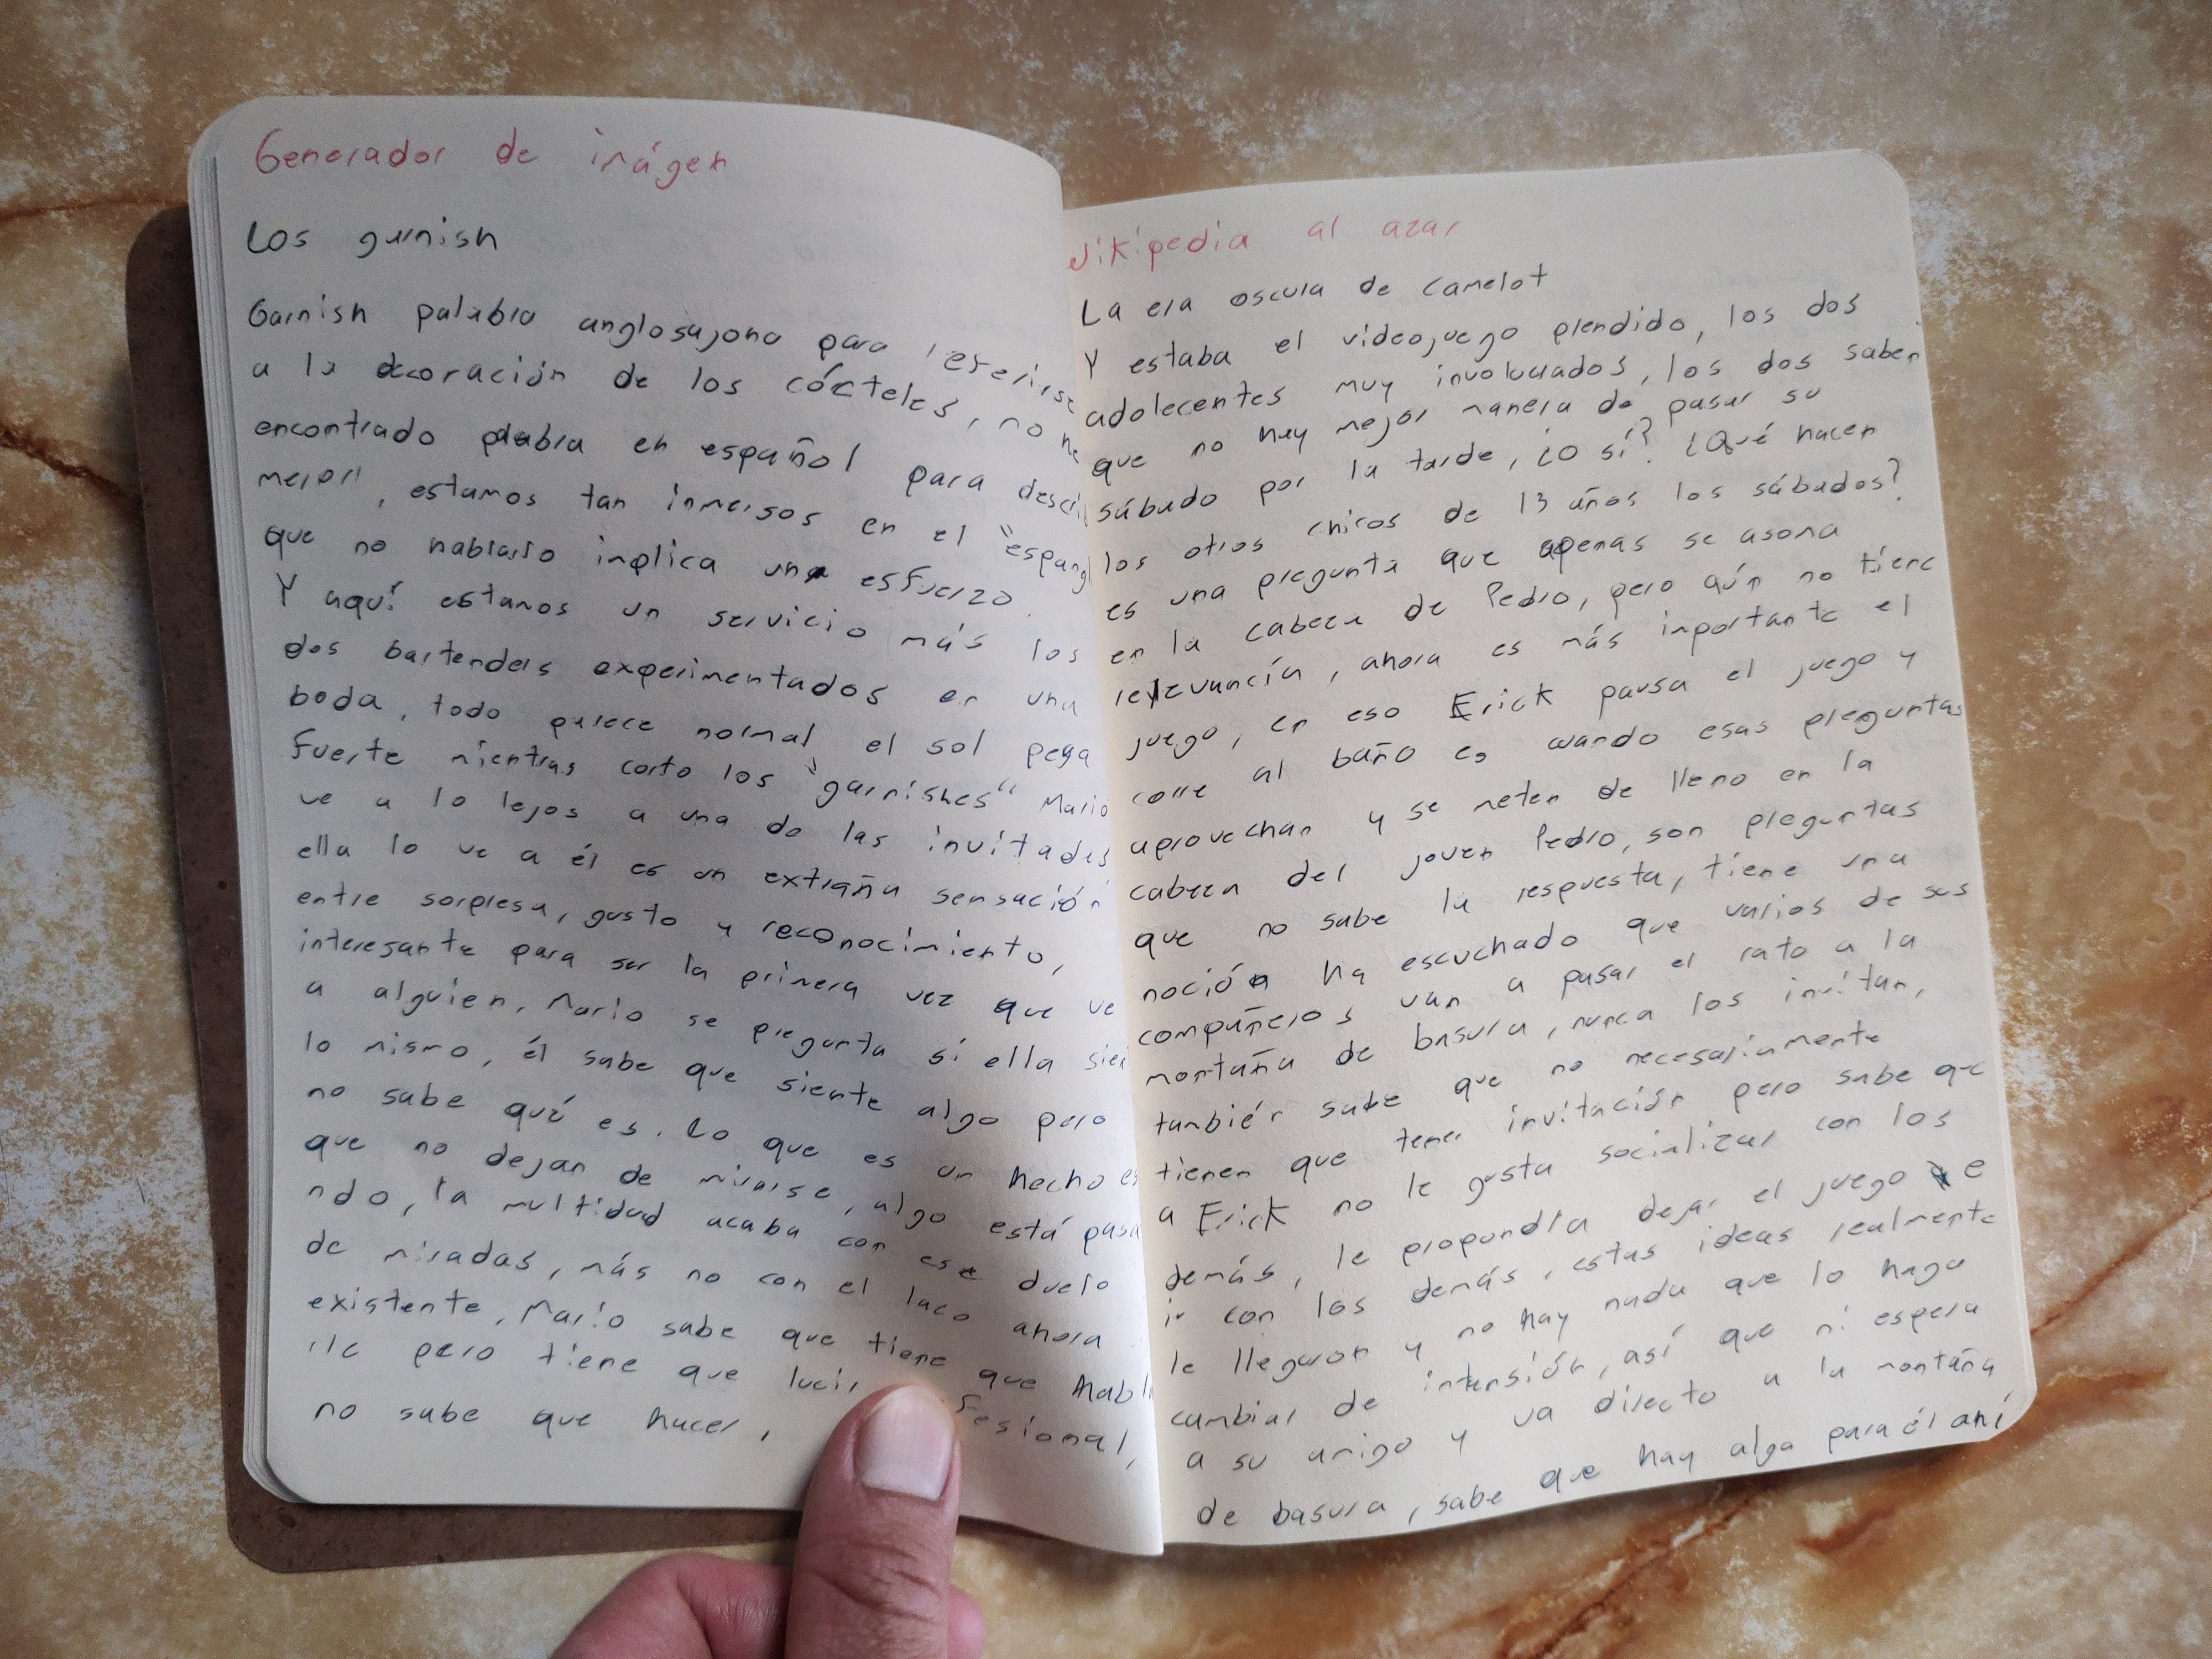 Generador de imágen
Los garnish
Garnish palabra anglosajona para referirse
a la decoración de los cócteles, no he
encontrado palabra en español para
mejor, estamos tan inmersos en el
que no hablarlo implica una esfuerzo.
Y aquí estamos un servicio más los
dos bartenders experimentados en una
boda, todo parece normal el sol pega
fuerte mientras corto los "garnishes" Mario
ve a lo lejos a una de las invitadas
ella lo ve a él es un extraña sensación
entre sorpresa, gusto y reconocimiento,
interesante para ser la primera vez que ve
a alguien, Mario se pregunta si ella
lo mismo, él sabe que siente algo pero
no sabe qué es. Lo que es un hecho es
que no dejan de mirarse, algo está pasa
ndo, la multidud acaba con ese duelo
de miradas, más no con el laco ahora
existente, Mario sabe que tiene que
rle pero tiene que lucir
no sabe que hacer,
Wikipedia al azar
La era oscura de Camelot
Y estaba el videojuego plendido, los dos
adolecentes muy involucrados, los dos saben
que no hay mejor manera de pasar su
sábado por la tarde, ¿O sí? ¿Qué hacen
los otros chicos de 13 años los sábados?
es una pregunta que apenas se asoma
en la cabeza de Pedro, pero aún no tiene
relevancía, ahora es más importante el
juego, en eso Erick pausa el juego y
corre al baño es cuando esas preguntas
aprovechan y se meten de lleno en la
cabeza del joven Pedro, son preguntas
que no sabe la respuesta, tiene una
noción ha escuchado que varios de sus
compañeros van a pasar el rato a la
montaña de basura, nunca los invitan,
también sabe que no necesariamente
tienen que tener invitación pero sabe que
a Erick no le gusta socializar con los
demás, le propondra dejar el juego e
ir con los demás, estas ideas realmente
le llegaron y no hay nada que lo haga
cambiar de intensión, así que ni espera
a su amigo y va directo a la montaña
de basura, sabe que hay alga para él ahí